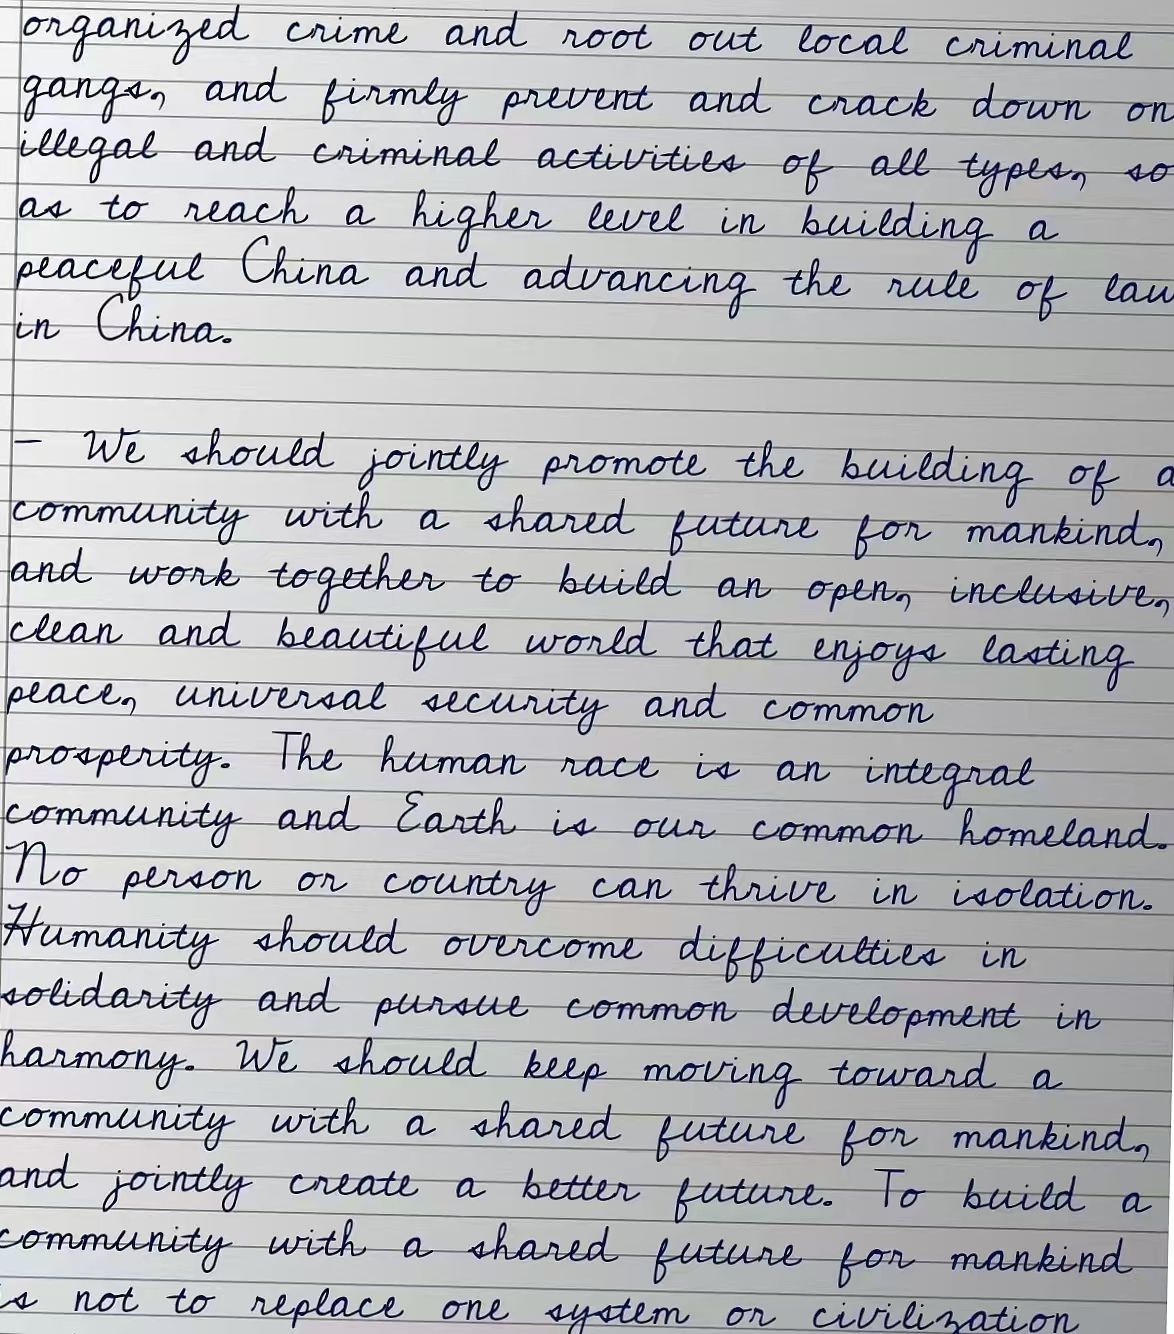 organized crime and root out local criminal
gangs, and firmly prevent and crack down on
illegal and criminal activities of all types, so
as to reach a higher level in building a
peaceful China and advancing the rule of law
in China.
— We should jointly promote the building of a
community with a shared future for mankind,
and work together to build an open, inclusive,
clean and beautiful world that enjoys lasting
peace, universal security and common
prosperity. The human race is an integral
community and Earth is our common homeland.
No person or country can thrive in isolation.
Humanity should overcome difficulties in
solidarity and pursue common development in
harmony. We should keep moving toward a
community with a shared future for mankind,
and jointly create a better future. To build a
community with a shared future for mankind
is not to replace one system or civilization